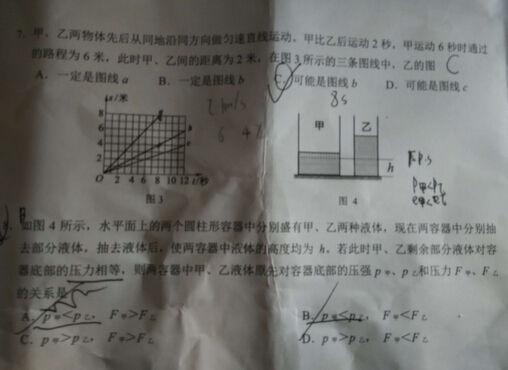 7. 甲、乙两物体先后从同地沿同方向做匀速直线运动。甲比乙后运动 2 秒,甲运动 6 秒时通过
的路程为 6 米,此时甲、乙间的距离为 2 米,在图 3 所示的三条图线中,乙的图 C
A. 一定是图线 a B. 一定是图线 b C. 可能是图线 b D. 可能是图线 c
s/米
8
6
4
2
0 2 4 6 8 10 12 t/秒
b
c
图 3
8s
6
甲
乙
h
图 4
如图 4 所示,水平面上的两个圆柱形容器中分别盛有甲、乙两种液体,现在两容器中分别抽
去部分液体,抽去液体后,使两容器中液体的高度均为 h。若此时甲、乙剩余部分液体对容
器底部的压力相等,则两容器中甲、乙液体原先对容器底部的压强 p甲、p乙和压力 F甲、F乙
的关系是
A. p甲<p乙, F甲>F乙
B. p甲<p乙, F甲<F乙
C. p甲>p乙, F甲>F乙
D. p甲>p乙, F甲<F乙